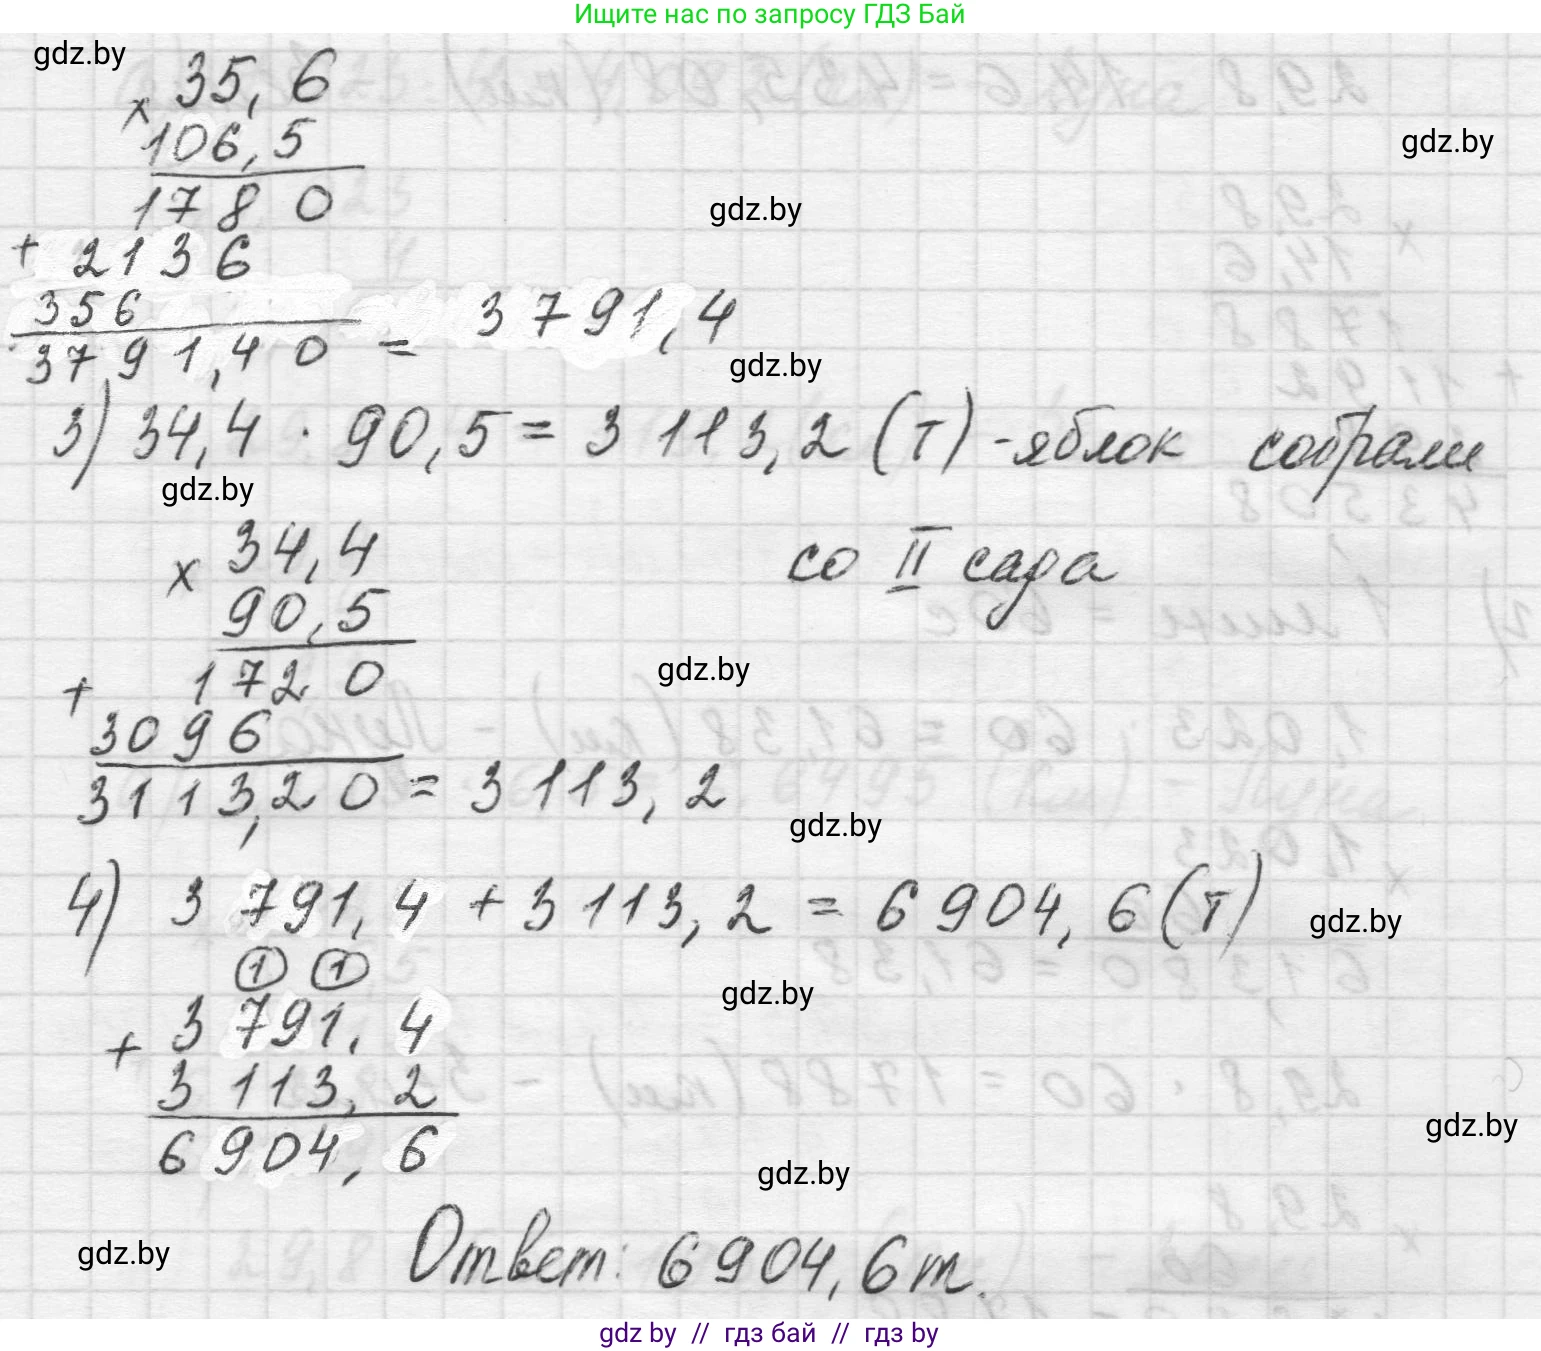 Ищите нас по запросу ГДЗ Бай
gdz.by
35,6
×
106,5
gdz.by
1780
gdz.by
+ 2136
356
3791,40 = 3791,4
gdz.by
3) 34,4 · 90,5 = 3 113,2 (т) - яблок собрали
gdz.by
со II сада
34,4
×
90,5
1720
gdz.by
+
3096
3113,20 = 3 113,2
gdz.by
4) 3 791,4 + 3 113,2 = 6 904,6 (т)
gdz.by
1 1
gdz.by
3 791,4
+
3 113,2
gdz.by
6 904,6
gdz.by
gdz.by
Ответ: 6 904,6 т.
gdz by // гдз бай // гдз by